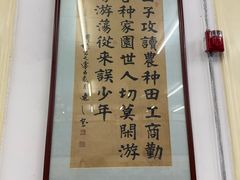 子攻讀農种田工商勤
种家園世人切莫閑游
游蕩從來誤少年